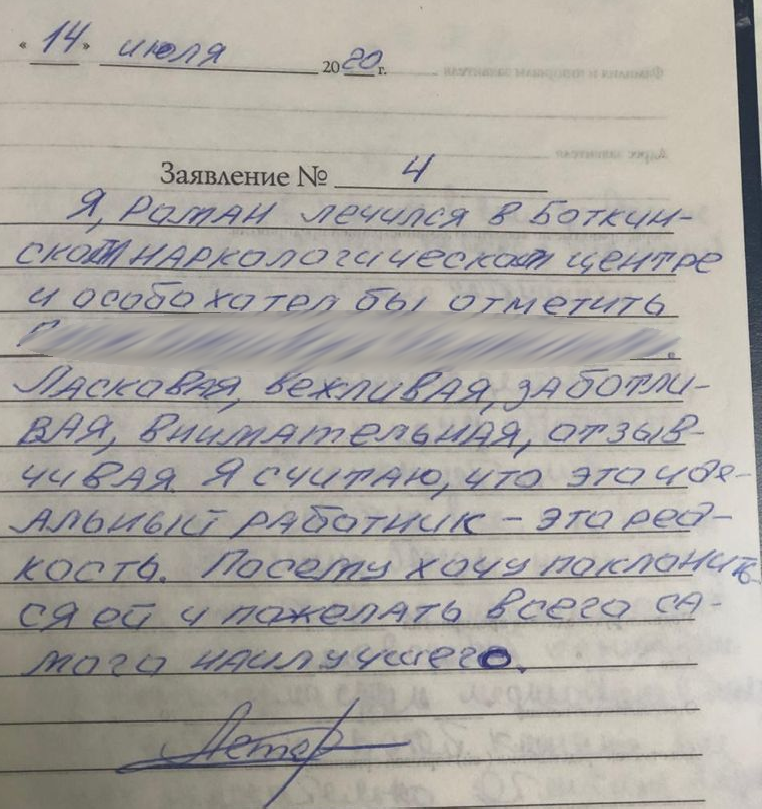 «14» июля 2020 г.
Заявление № 4
Я, Роман лечился в Боткин-
ском наркологическом центре
и особо хотел бы отметить
Ласковая, вежливая, заботли-
вая, внимательная, отзыв-
чивая. Я считаю, что это иде-
альный работник – это ред-
кость. Посему хочу поклонить-
ся ей и пожелать всего са-
мого наилучшего.